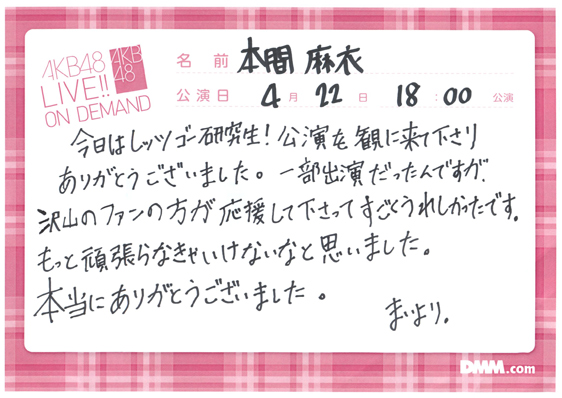 AKB48
LIVE!!
ON DEMAND
AKB
48
名前 本間 麻衣
公演日 4月 22日 18:00 公演
今日はレッツゴー研究生!公演を観に来て下さり
ありがとうございました。一部出演だったんですが、
沢山のファンの方が応援して下さってすごくうれしかったです。
もっと頑張らなきゃいけないなと思いました。
本当にありがとうございました。
まいより。
DMM.com